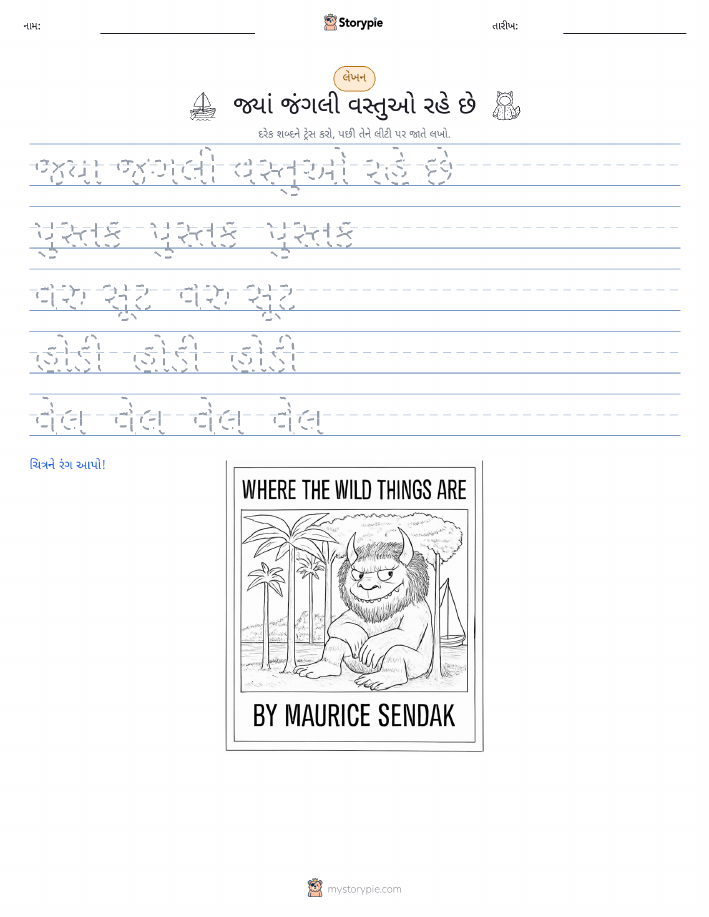 નામ:
Storypie
તારીખ:
લેખન
જ્યાં જંગલી વસ્તુઓ રહે છે
દરેક શબ્દને ટ્રેસ કરો, પછી તેને લીટી પર જાતે લખો.
જ્યાં જંગલી વસ્તુઓ રહે છે
પુસ્તક પુસ્તક પુસ્તક
વરુ સૂટ વરુ સૂટ
હોડી હોડી હોડી
વેલ વેલ વેલ વેલ
ચિત્રને રંગ આપો!
WHERE THE WILD THINGS ARE
BY MAURICE SENDAK
mystorypie.com